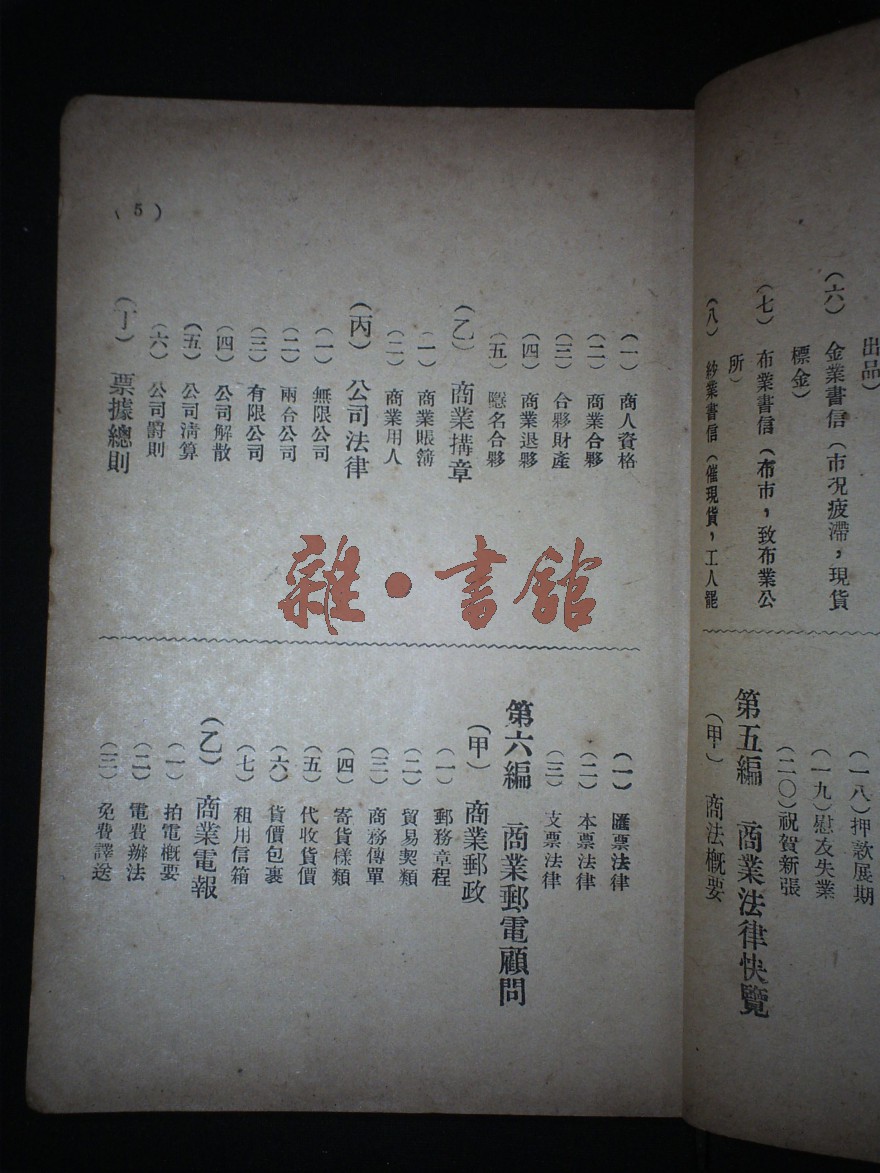 出品）
（六）　金業書信（市况疲滯，現貨
標金）
（七）　布業書信（布市，致布業公
所）
（八）　紗業書信（催現貨，工人罷
（一八）押款展期
（一九）慰友失業
（二〇）祝賀新張
第五編　商業法律快覽
（甲）　商法概要
（一）　商人資格
（二）　商業合夥
（三）　合夥財產
（四）　商業退夥
（五）　隱名合夥
（乙）　商業搆章
（一）　商業賬簿
（二）　商業用人
（丙）　公司法律
（一）　無限公司
（二）　兩合公司
（三）　有限公司
（四）　公司解散
（五）　公司淸算
（六）　公司罰則
（丁）　票據總則
（5）
（一）　匯票法律
（二）　本票法律
（三）　支票法律
第六編　商業郵電顧問
（甲）　商業郵政
（一）　郵務章程
（二）　貿易契類
（三）　商務傳單
（四）　寄貨樣類
（五）　代收貨價
（六）　貨價包裹
（七）　租用信箱
（乙）　商業電報
（一）　拍電槪要
（二）　電費辦法
（三）　免費譯送
雜·書館